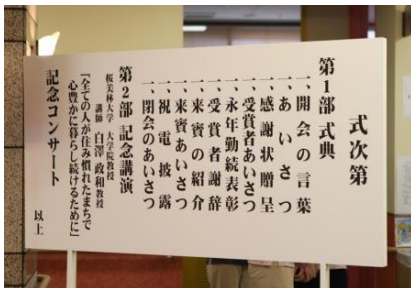 式次第
第1部 式典
一、開会の言葉
一、あいさつ
一、感謝状贈呈
一、受賞者あいさつ
一、永年勤続表彰
一、受賞者謝辞
一、来賓の紹介
一、来賓あいさつ
一、祝電披露
一、閉会のあいさつ
第2部 記念講演
桜美林大学 大学院教授
講師 白澤政和教授
「全ての人が住み慣れたまちで
心豊かに暮らし続けるために」
記念コンサート
以上